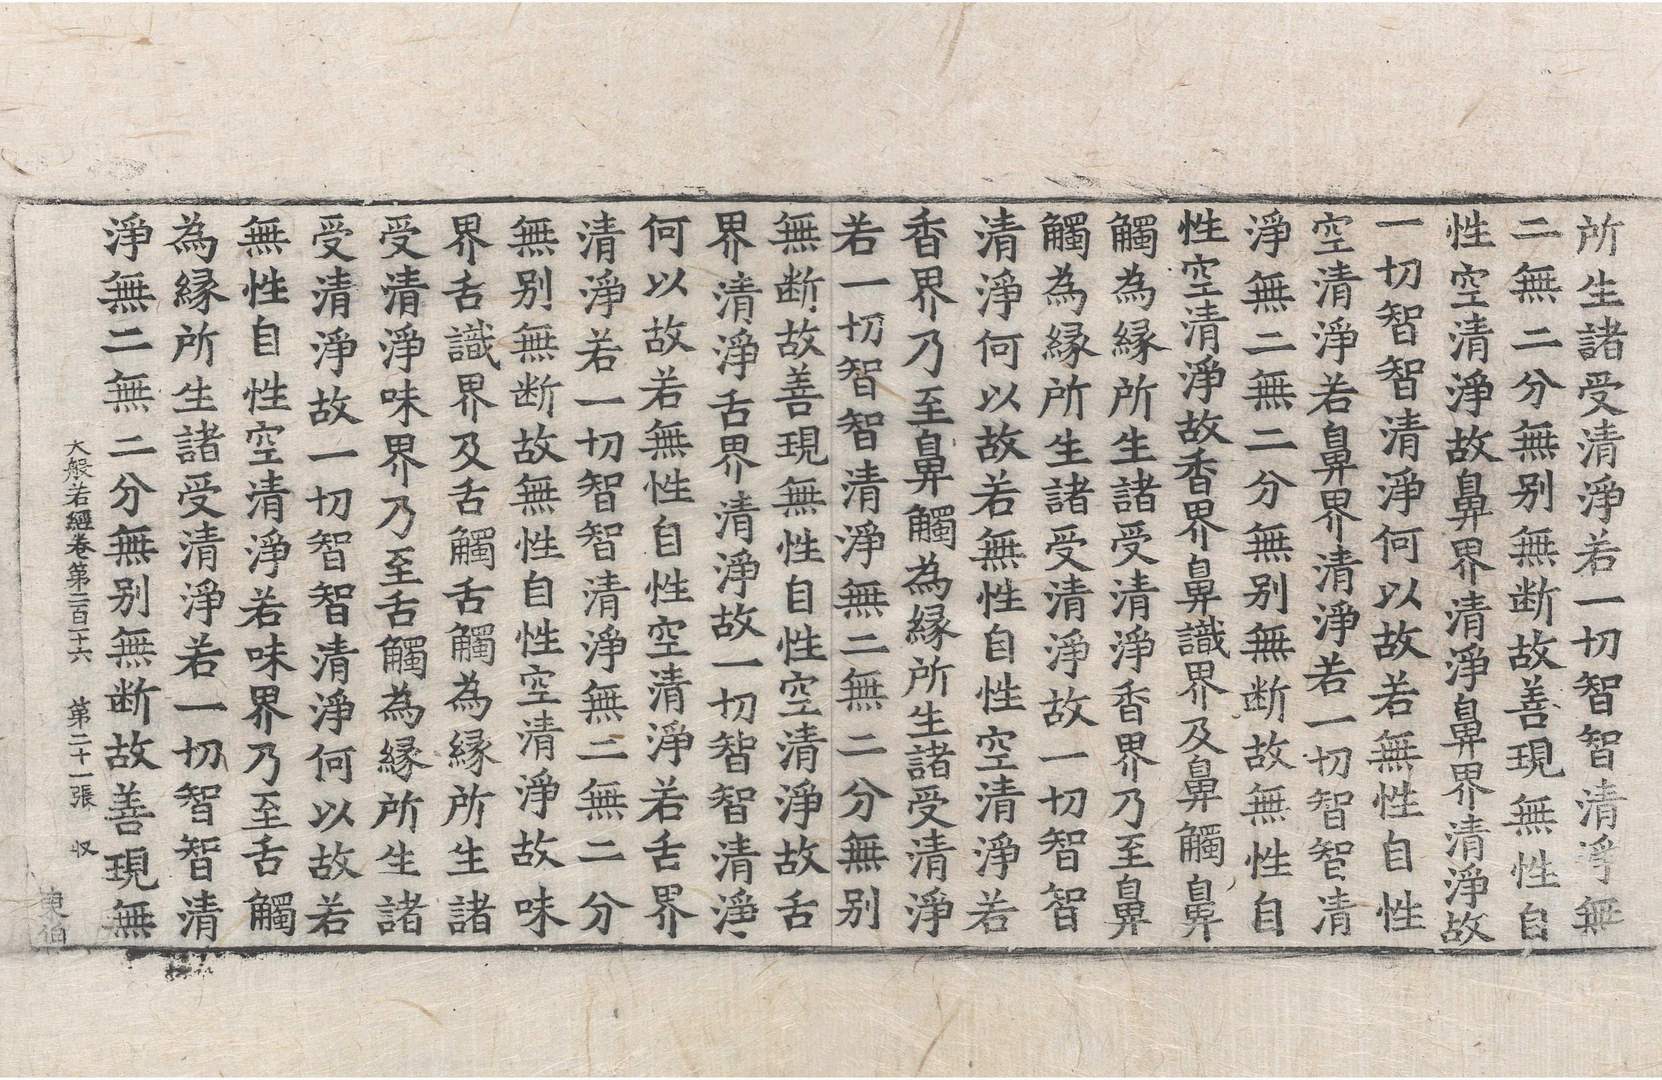 所生諸受清淨若一切智智清淨無
二無二分無别無断故善現無性自
性空清淨故鼻界清淨鼻界清淨故
一切智智清淨何以故若無性自性
空清淨若鼻界清淨若一切智智清
淨無二無二分無别無断故無性自
性空清淨故香界鼻識界及鼻觸鼻
觸為縁所生諸受清淨香界乃至鼻
觸為縁所生諸受清淨故一切智智
清淨何以故若無性自性空清淨若
香界乃至鼻觸為縁所生諸受清淨
若一切智智清淨無二無二分無别
無断故善現無性自性空清淨故舌
界清淨舌界清淨故一切智智清淨
何以故若無性自性空清淨若舌界
清淨若一切智智清淨無二無二分
無别無断故無性自性空清淨故味
界舌識界及舌觸舌觸為縁所生諸
受清淨味界乃至舌觸為縁所生諸
受清淨故一切智智清淨何以故若
無性自性空清淨若味界乃至舌觸
為縁所生諸受清淨若一切智智清
淨無二無二分無别無断故善現無
大般若經卷第二百二十六 第二十一張 収
東伯